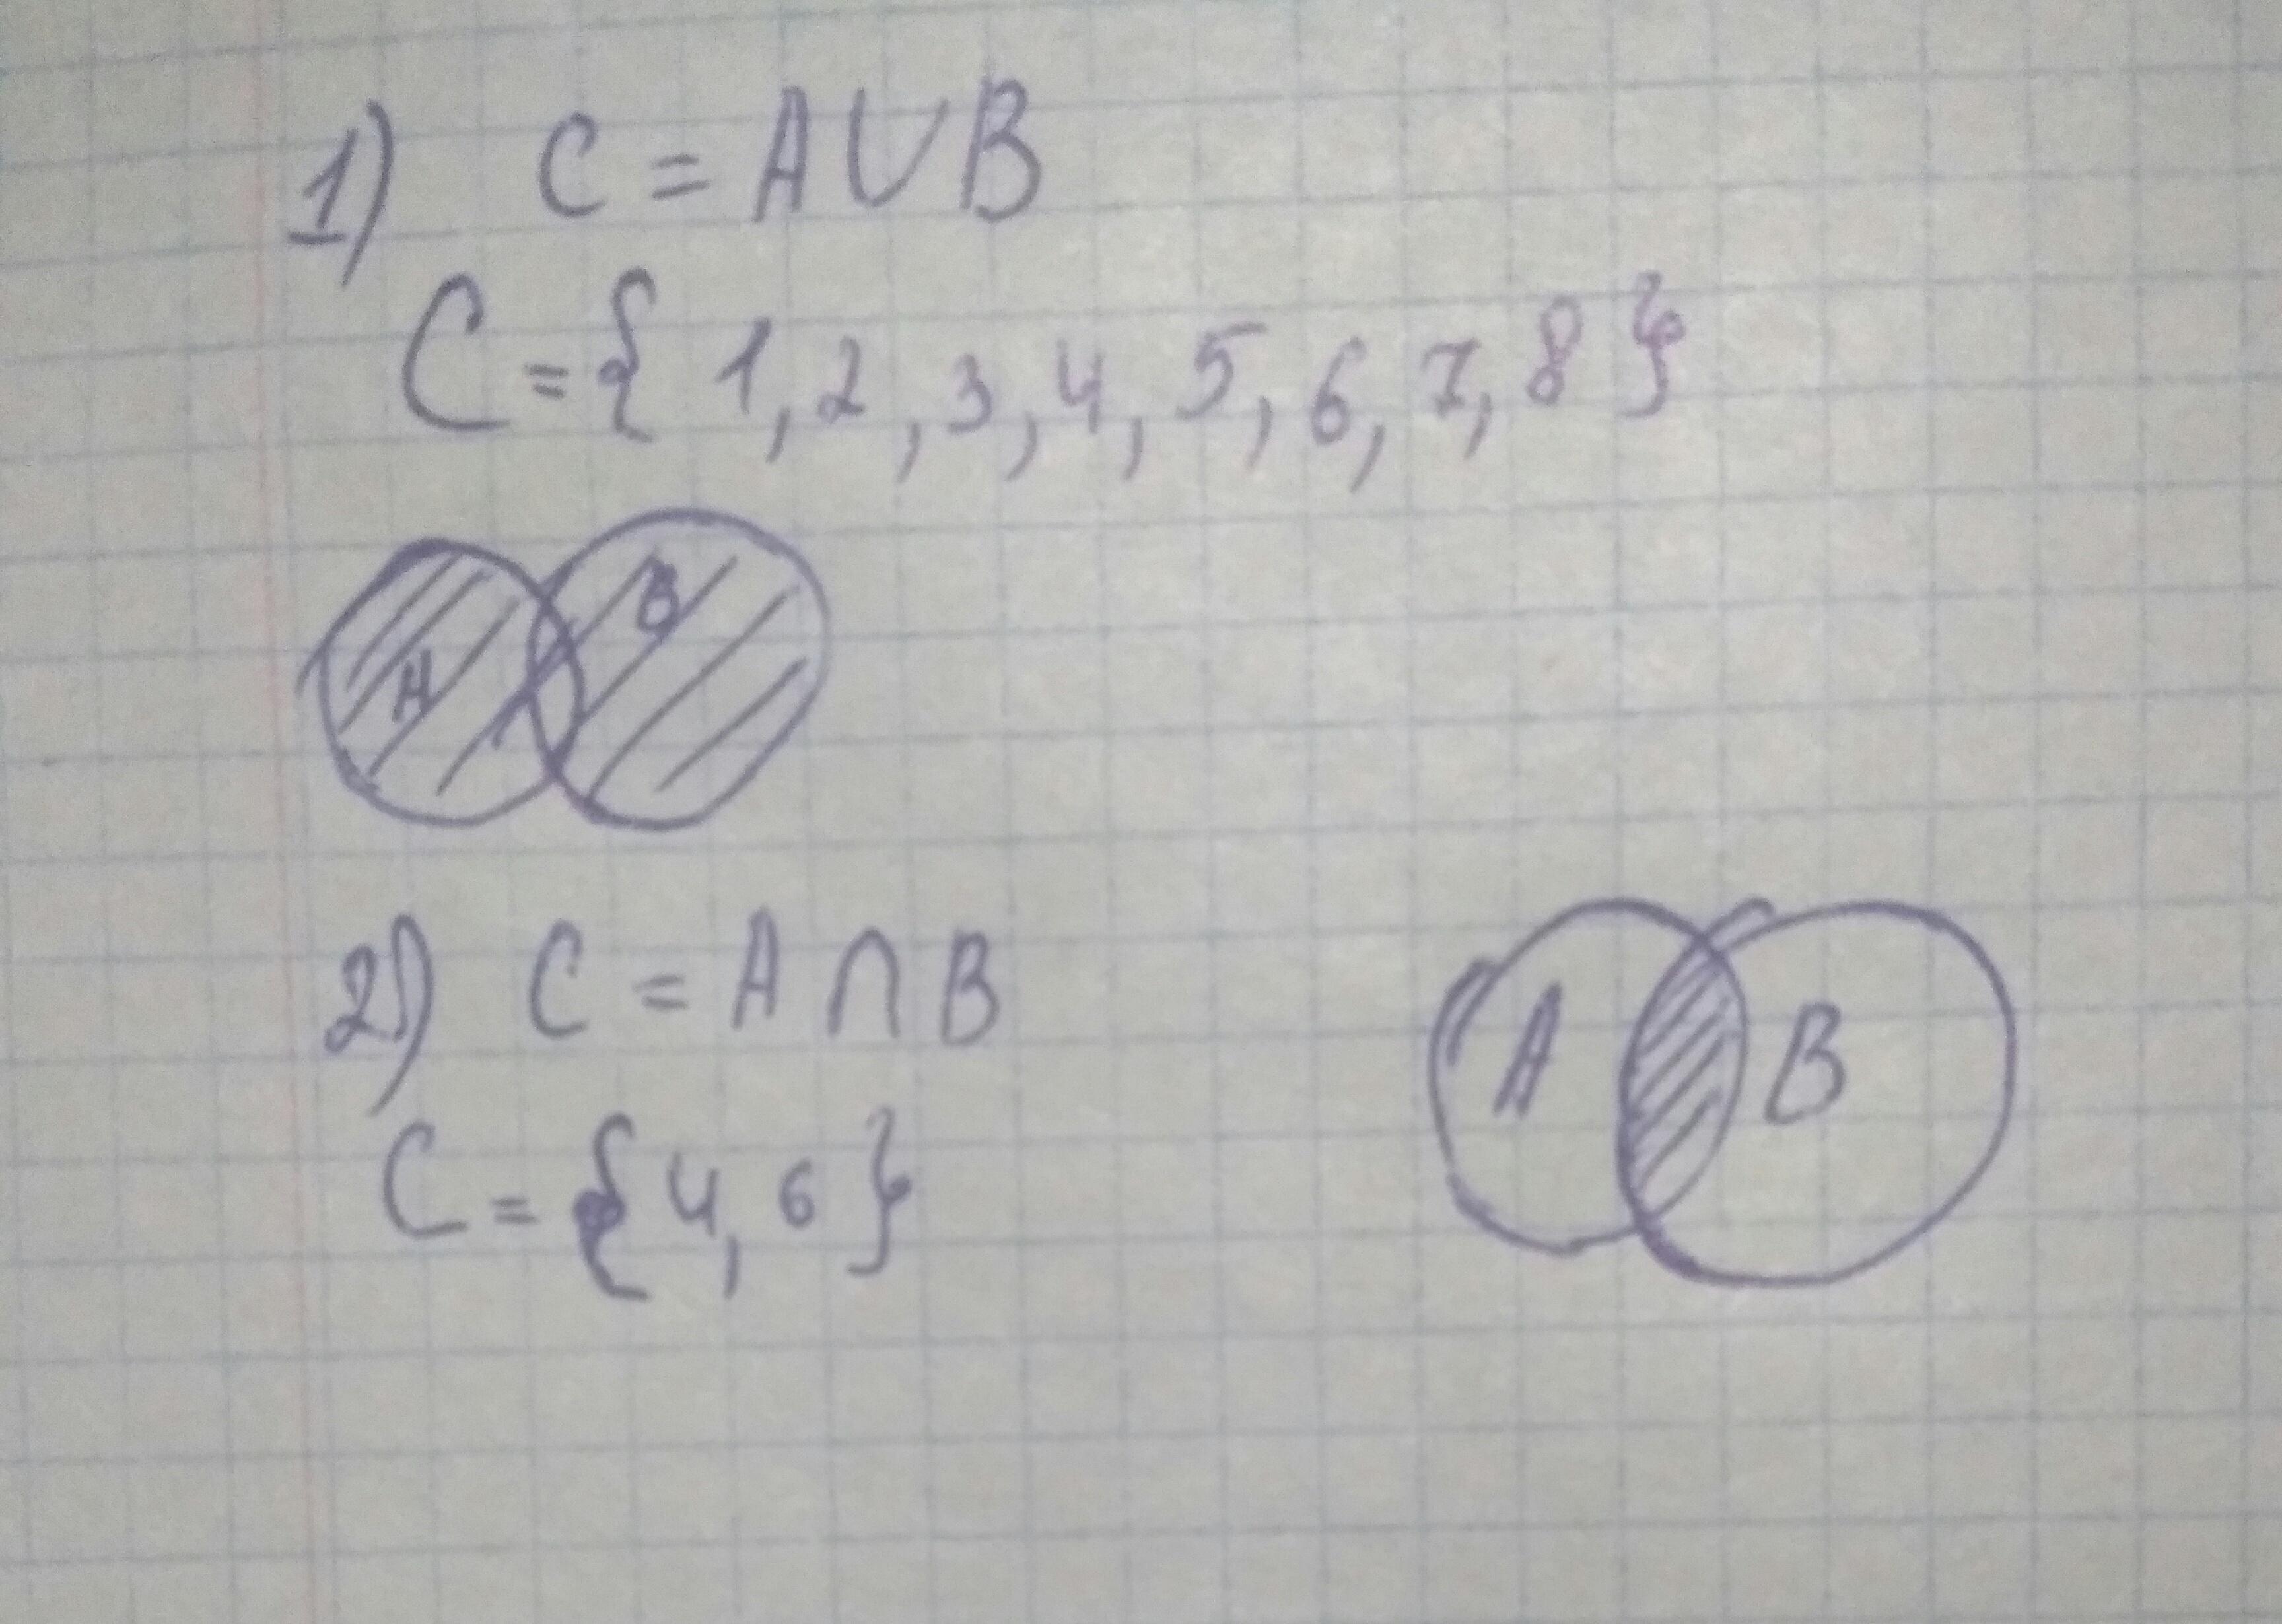 1) C = A ∪ B
C = { 1, 2, 3, 4, 5, 6, 7, 8 }
A B
2) C = A ∩ B
A B
C = { 4, 6 }